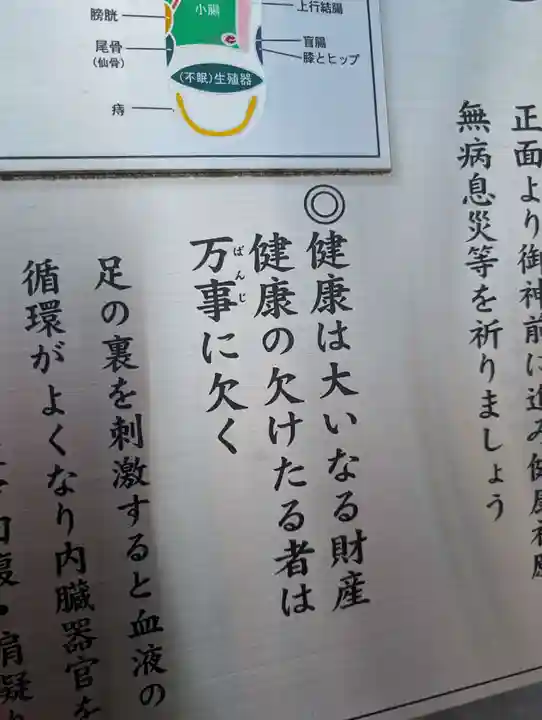 小腸
膀胱
尾骨
(仙骨)
痔
(不眠)生殖器
上行結腸
盲腸
膝とヒップ
正面より御神前に進み健康祈願
無病息災等を祈りましょう
◎健康は大いなる財産
健康の欠けたる者は
万事に欠く
ばんじ
足の裏を刺激すると血液の
循環がよくなり内臓器官を